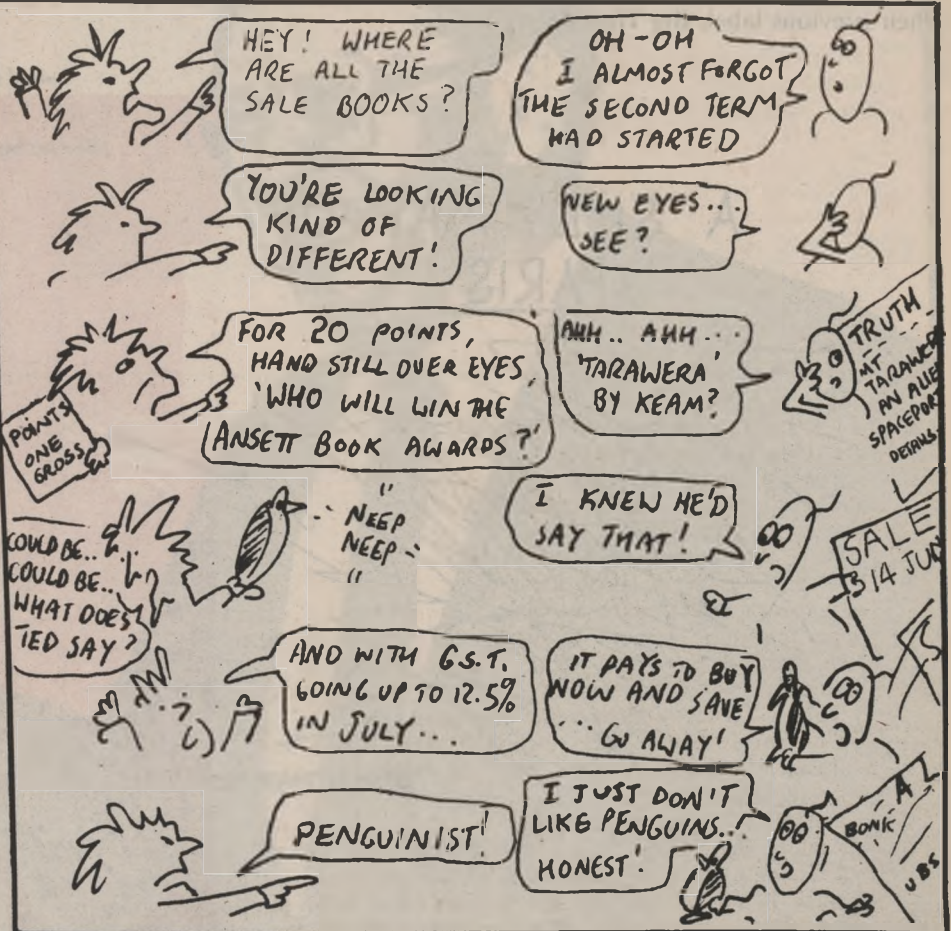 HEY! WHERE
ARE ALL THE
SALE BOOKS?
OH-OH
I ALMOST FORGOT
THE SECOND TERM
HAD STARTED
YOU'RE LOOKING
KIND OF
DIFFERENT!
NEW EYES...
SEE?
FOR 20 POINTS,
HAND STILL OVER EYES,
'WHO WILL WIN THE
ANSETT BOOK AWARDS?'
AHH.. AHH...
'TARAWERA'
BY KEAM?
TRUTH
MT
TARAWERA
AN ALIEN
SPACEPORT
DETAILS.
POINTS
ONE
GROSS
COULD BE..
COULD BE..
WHAT DOES
TED SAY?
" NEEP
NEEP "
I KNEW HE'D
SAY THAT!
SALE
AND WITH G.S.T.
GOING UP TO 12.5%
IN JULY...
IT PAYS TO BUY
NOW AND SAVE
... GO AWAY!
PENGUINIST!
I JUST DON'T
LIKE PENGUINS...
HONEST!
UBS